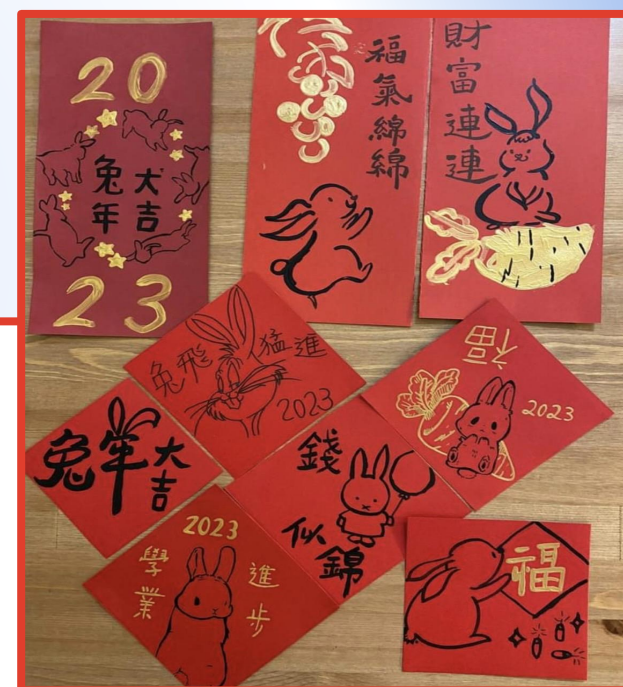 20
兔年
大吉
23
福氣綿綿
財富連連
兔飛
猛進
2023
福
2023
兔年大吉
錢
似錦
2023
學業
進步
福